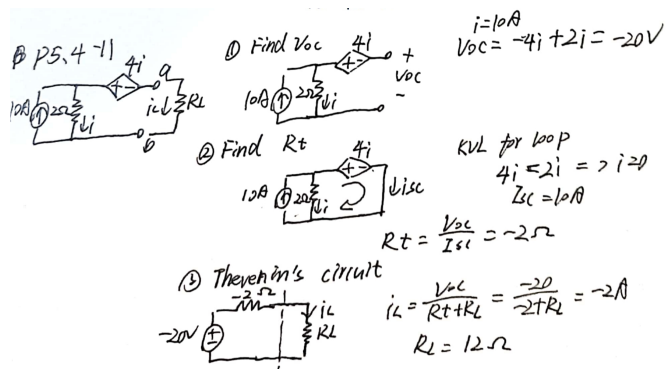 P5.4-11
4i
a
10A 2Ω i iL RL
b
① Find Voc
4i
+
Voc
-
10A 2Ω i
i=10A
Voc = -4i + 2i = -20V
② Find Rt
4i
10A 2Ω i isc
KVL for loop
4i = 2i => i=0
Isc = 10A
Rt = Voc/Isc = -2Ω
③ Thevenin's circuit
-2Ω
-20V
iL
RL
iL = Voc/(Rt+RL) = -20/(-2+RL) = -2A
RL = 12Ω